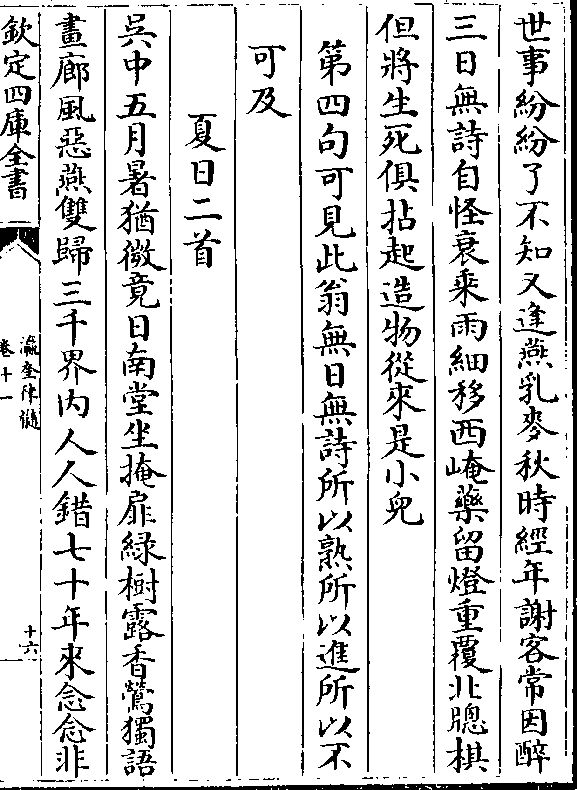 世事紛紛了不知又逢燕乳麥秋時經年謝客常因醉
三日無詩自怪衰乘雨細移西崦藥留燈重覆北牕棋
但將生死俱拈起造物從來是小兒
第四句可見此翁無日無詩所以熟所以進所以不
可及
夏日二首
吳中五月暑猶微竟日南堂坐掩扉綠樹露香鶯獨語
畫廊風惡燕雙歸三千界内人人錯七十年來念念非
欽定四庫全書
瀛奎律髓
卷十一
十六